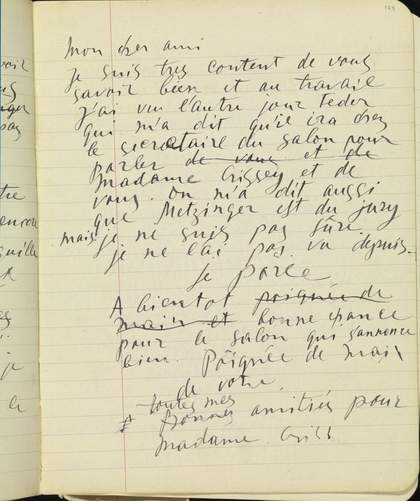 Mon cher ami
je suis très content de vous
savoir bien et au travail
j'ai vu l'autre jour Feder
qui m'a dit qu'il ira chez
le secretaire du salon pour
parler de vous et de
Madame Crissey et de
vous. On m'a dit aussi
que Metzinger est du jury
mais je ne suis pas sûre.
je ne l'ai pas vu depuis.
Je
A bientot poignée de
main et bonne chance
pour le salon qui s'annonce
bien. Poignée de main
de votre
toutes mes
bonnes amitiés pour
madame